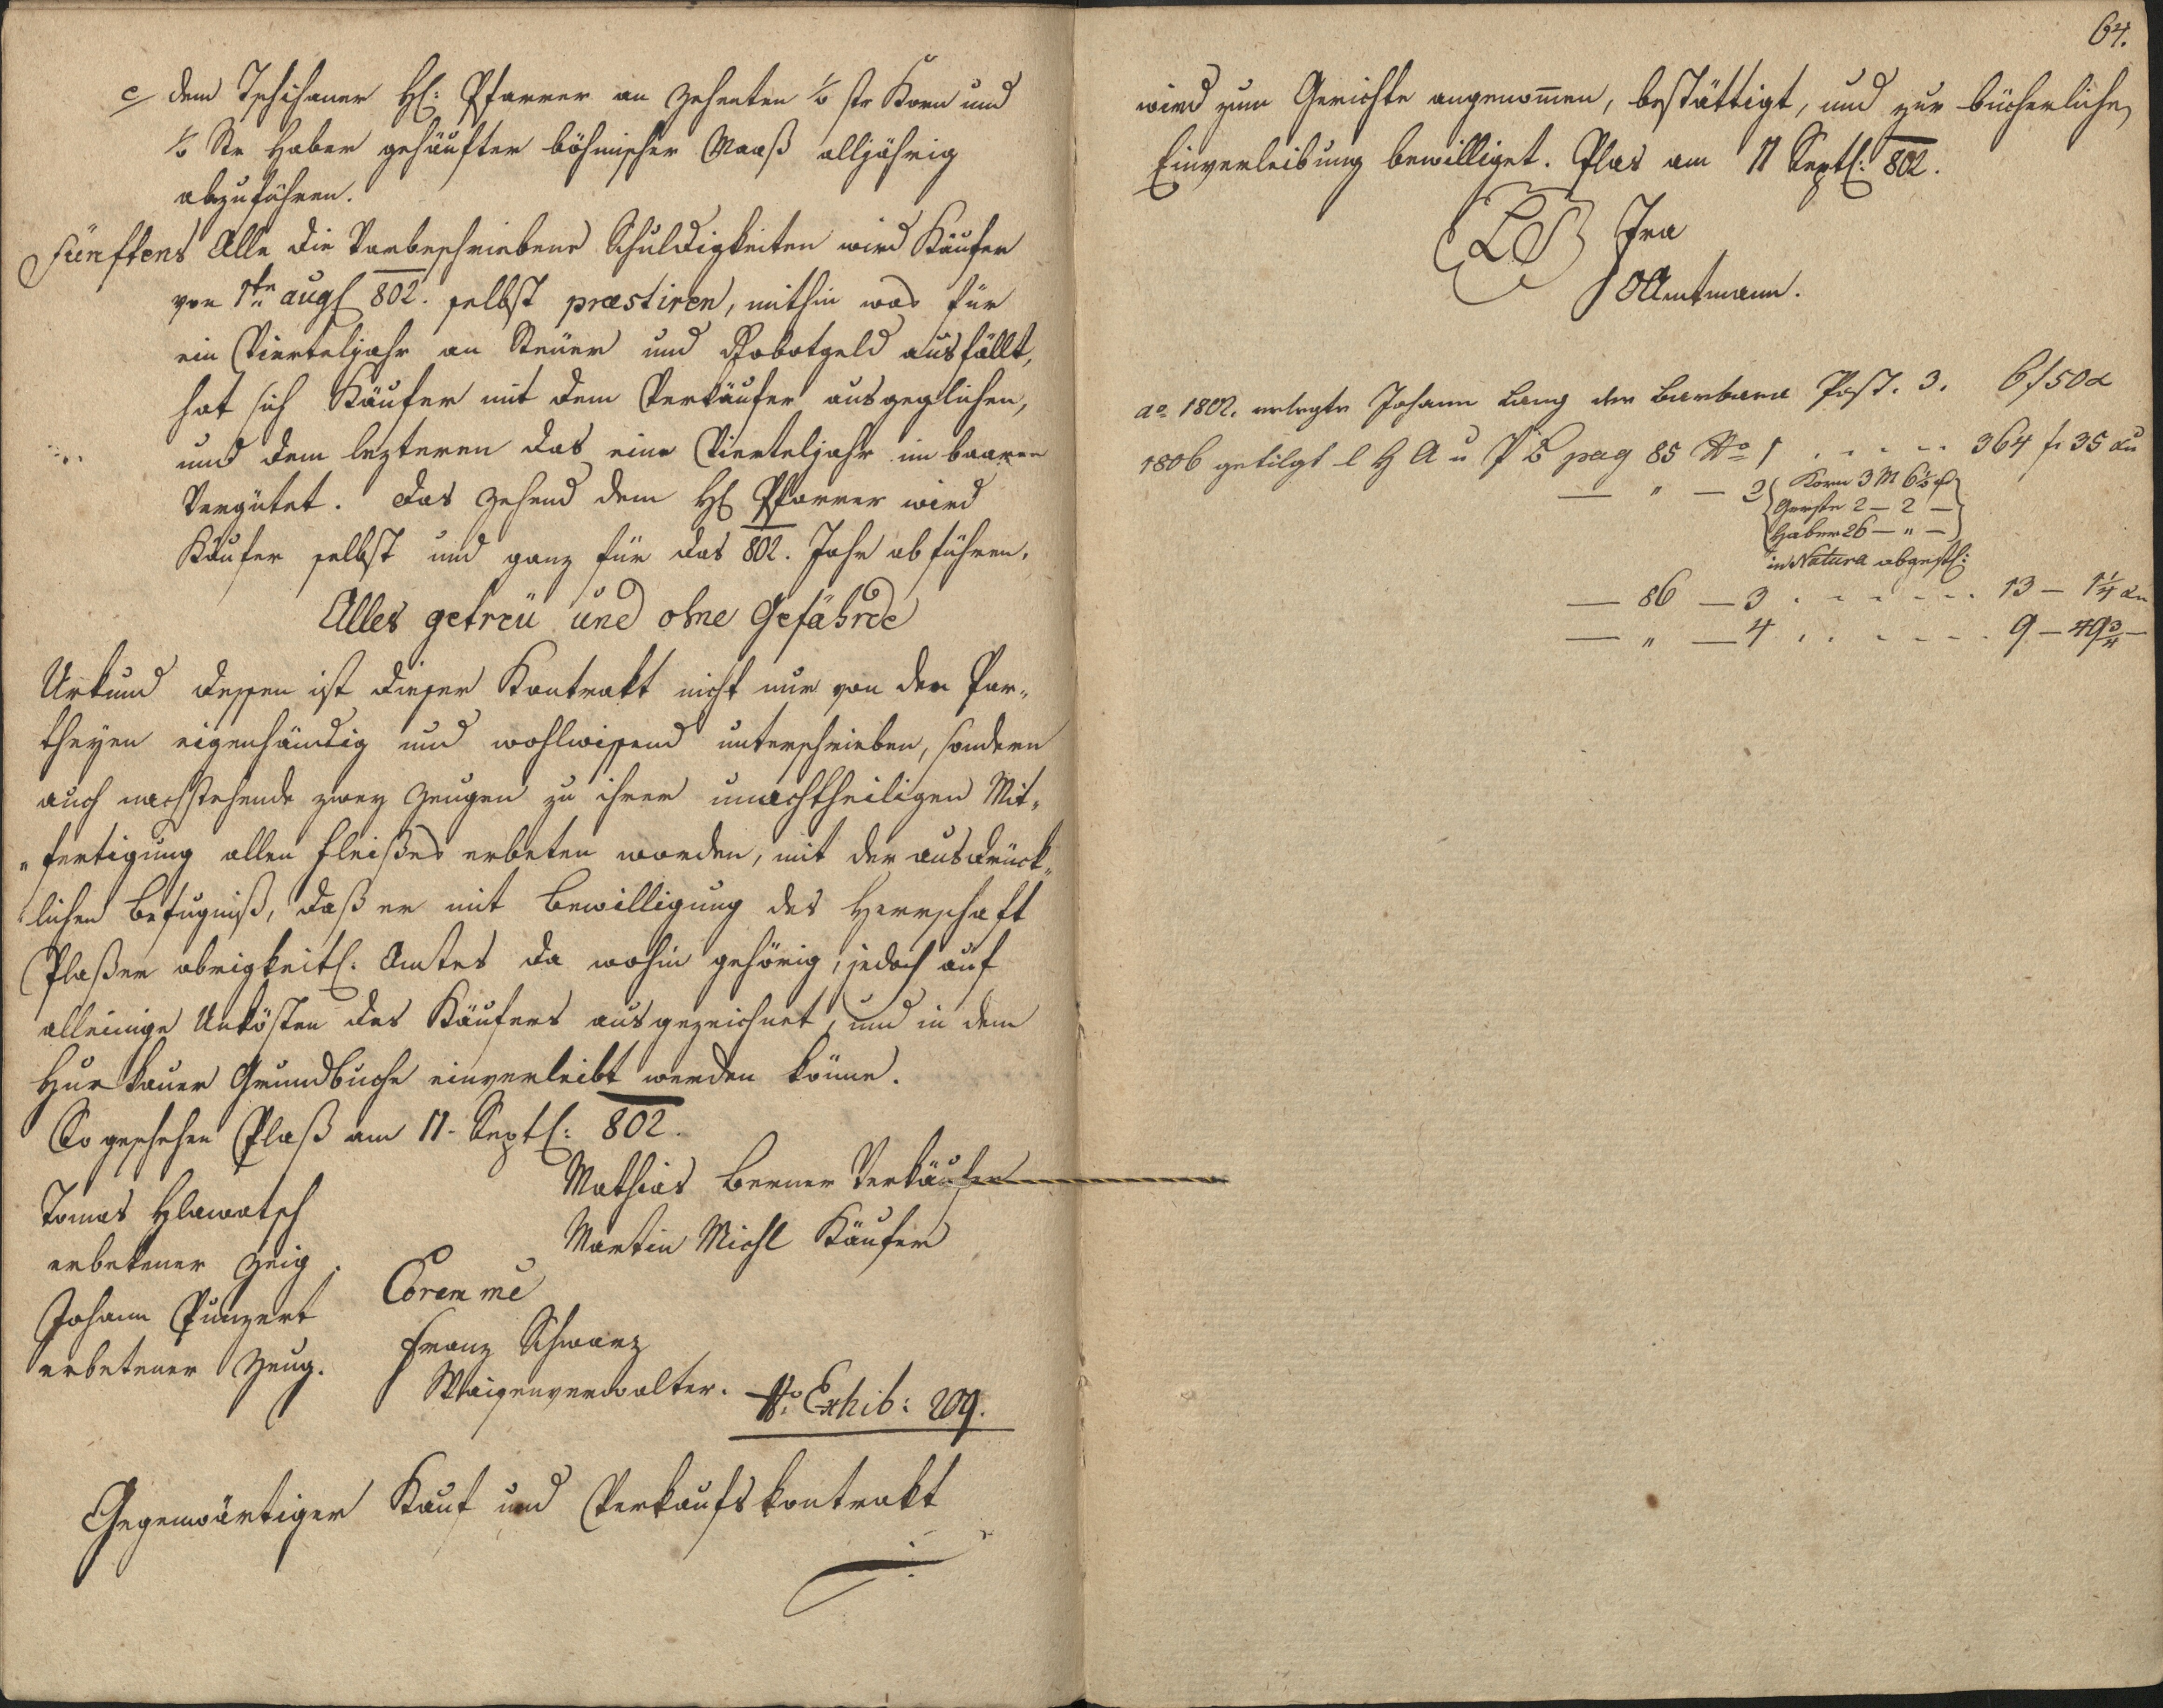 c dem Tschihaner H: Pfarrer an Zehenten ½ str Korn und
½ Str Haber gehäufter böhmischer Maaß alljährig
abzuführen.
Fünftens Alle die Vorbeschriebene Schuldigkeiten wird Käufer
von 1ten aug 802. selbst præstiren, mithin was für
ein Vierteljahr an Steuer und Robotgeld ausfällt,
hat sich Käufer mit dem Verkäufer ausgeglichen,
und dem lezteren das eine Vierteljahr im baaren
Vergütet. Das Zehend dem H Pfarrer wird
Käufer selbst und ganz für das 802. Jahr abführen.
Alles getreü und ohne Gefährde
Urkund dessen ist dieser Kontrakt nicht nur von den Par„
theyen eigenhändig und wohlwissend unterschrieben, sondern
auch nachstehende zwey Zeugen zu ihrer unnachtheiligen Mit„
„fertigung allen Fleißes erbeten worden, mit der ausdrück„
„lichen Befugniß, daß er mit Bewilligung des Herrschaft
Plaßer obrigkeitl. Amtes da wohin gehörig, jedoch auf
alleinige Unkösten des Käufers ausgezeichnet, und in dem
Hurkauer Grundbuche einverleibt werden könne.
So geschehen Plaß am 11. Sept: 802.
Mathias Berner Verkäufer
Tomas Hlawatsch
Martin Michl Käufer
erbetener Zeig.
Coram me
Johann Punzert
Franz Schwarz
erbetener Zeug.
Waisenverwalter.
No. Exhib: 209.
Gegenwärtiger Kauf und Verkaufskontrakt
64.
wird zum Gerichte angenom̅en, bestättigt, und zur bücherlichen
Einverleibung bewilliget. Plas am 11 Sept: 802.
LS
OAmtmann.
ao 1802. erlegte Johann Lang der Barbara Post. 3. 6 f 50 x
1806 getilgt l H A u P B pag 85 No 1 . . . . . 364 f. 35 xn
— „ — 2 { Korn 3 M 6½
Gerste 2 — 2 —
Haber 26 — „ — }
in Natura abgest:
— 86 — 3 . . . . . . 13 — 1¼ xn
— „ — 4 . . . . . . 9 — 49¾ —